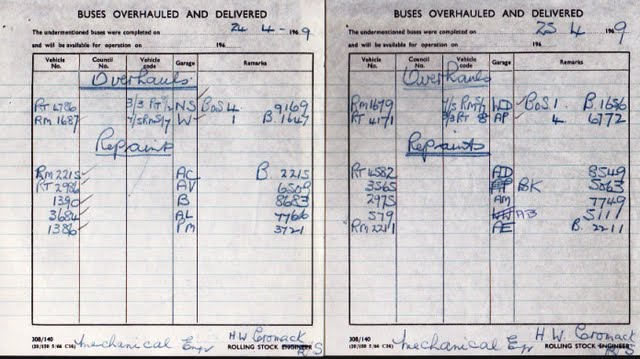 BUSES OVERHAULED AND DELIVERED
The undermentioned buses were completed on 24 4 - 1969
and will be available for operation on 196
Vehicle No. Council No. Vehicle code Garage Remarks
Overhauls
RT 4786 3/3 RT NS BoS 4. 9169
RM 1687 7/5 RM5/7 W 1 B. 1647
Repaints
RM 2215 AC B. 2215
RT 2986 AV 6509
1390 B 8683
3684 AL 7766
1386 PM 3721
308/140
Mechanical Engr H W Cromack
ROLLING STOCK ENGINEER
BUSES OVERHAULED AND DELIVERED
The undermentioned buses were completed on 25 4 1969
and will be available for operation on 196
Vehicle No. Council No. Vehicle code Garage Remarks
Overhauls
RM 1679 7/5 RM5/7 WD BoS 1. B. 1656
RT 4171 3/3 RT 8 AP 4. 6772
Repaints
RT 4582 AD 8549
3565 BK 5063
2975 AM 7749
579 AB 5117
RM 2211 AE B. 2211
308/140
Mechanical Engr H W Cromack
ROLLING STOCK ENGINEER
R/S